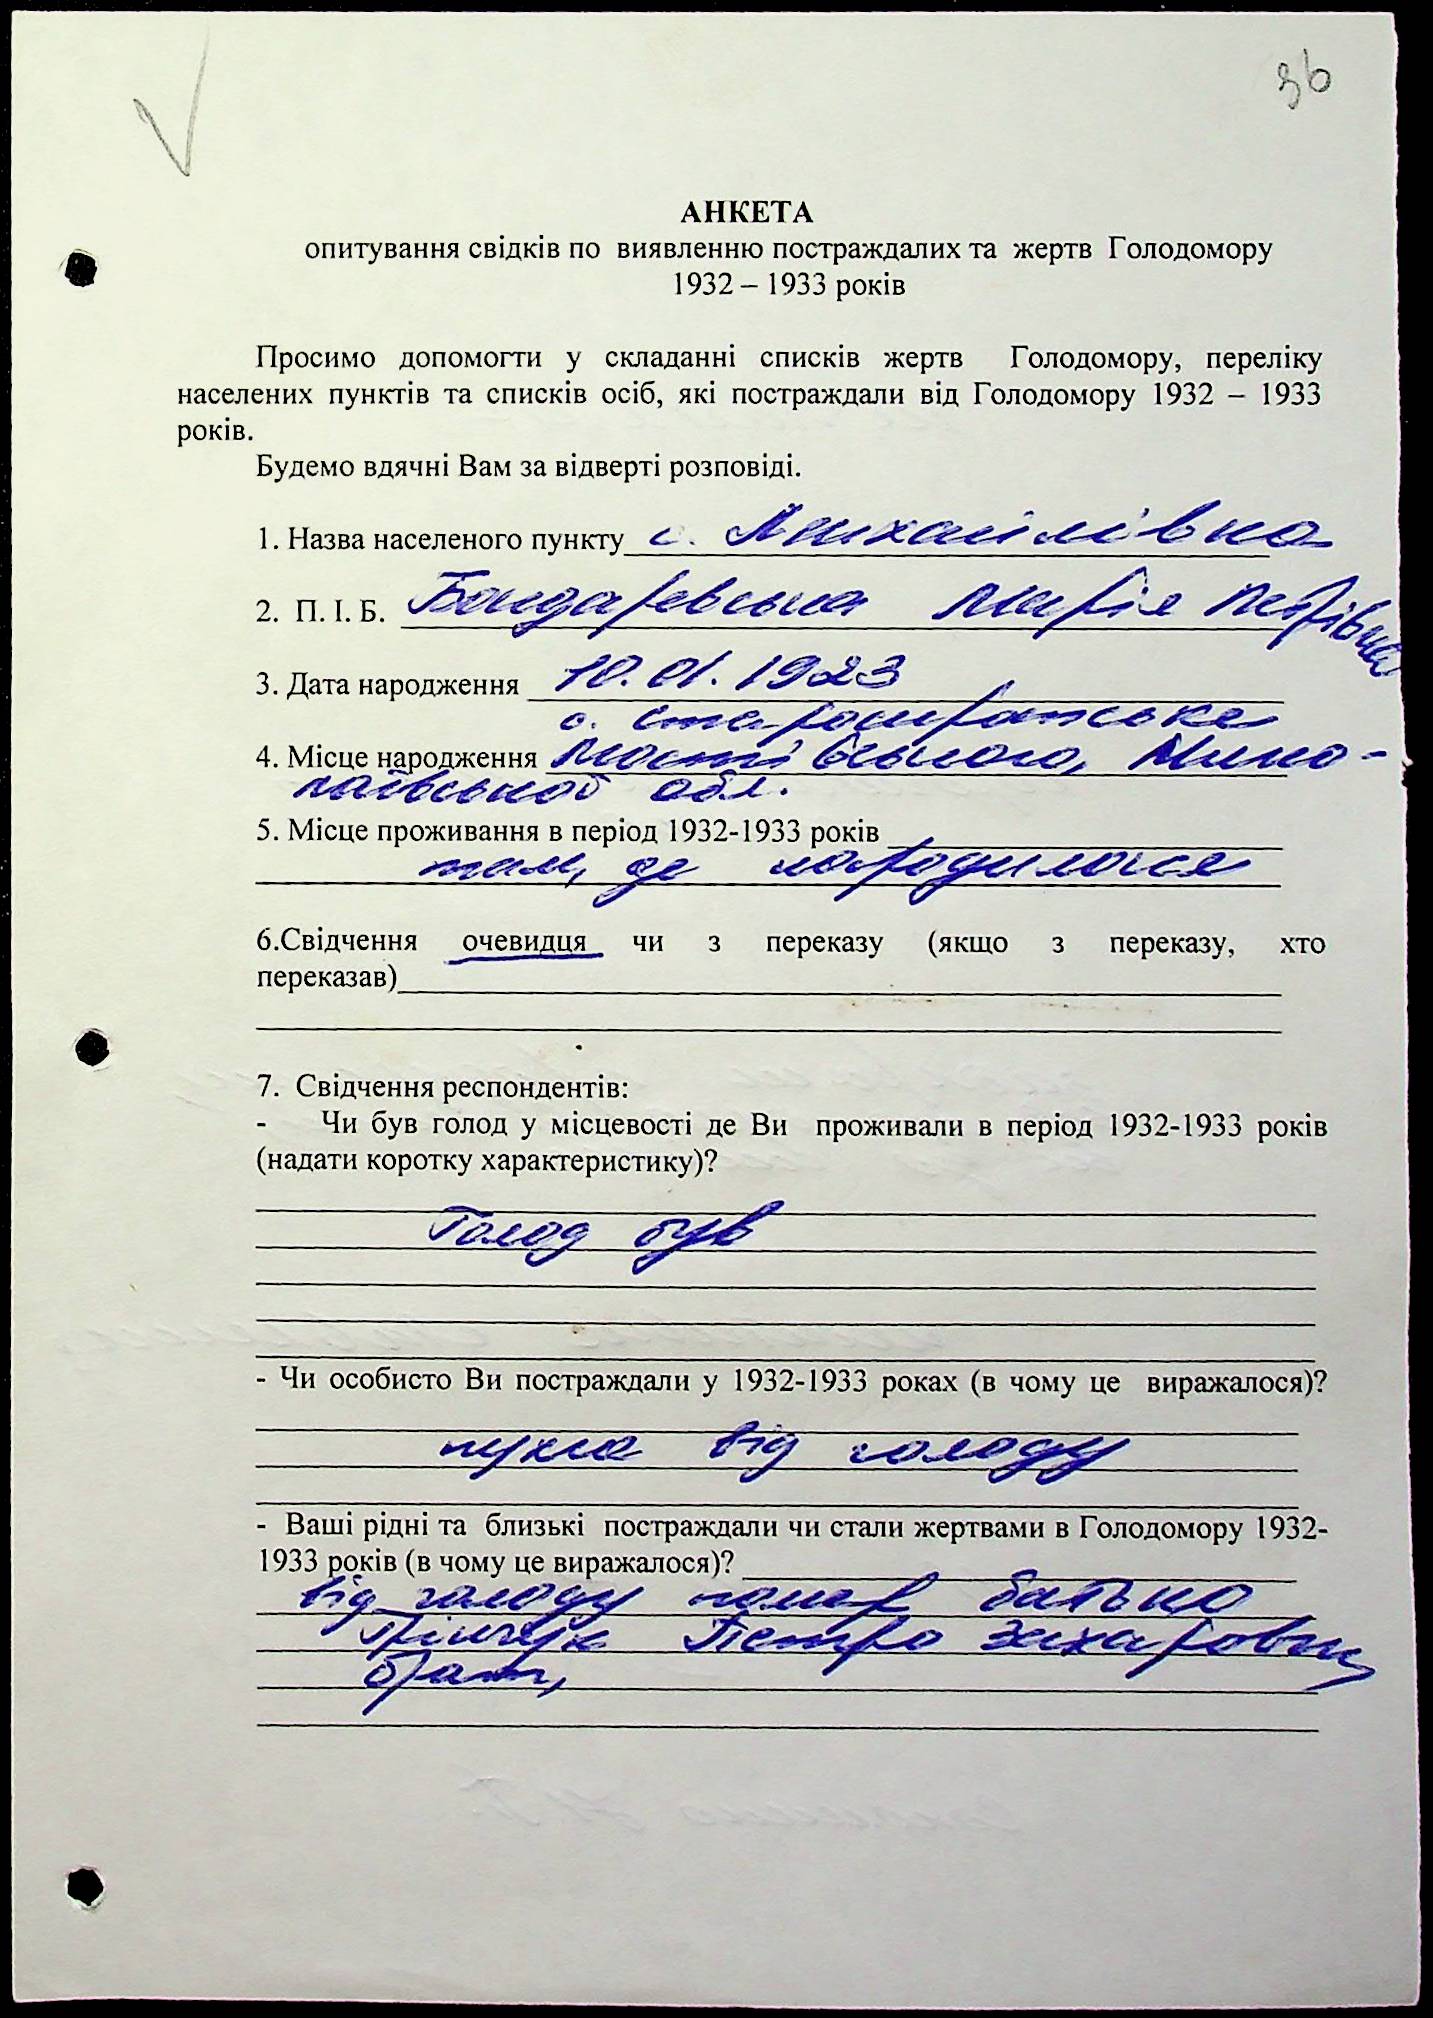 36
АНКЕТА
опитування свідків по виявленню постраждалих та жертв Голодомору
1932 – 1933 років
Просимо допомогти у складанні списків жертв Голодомору, переліку
населених пунктів та списків осіб, які постраждали від Голодомору 1932 – 1933
років.
Будемо вдячні Вам за відверті розповіді.
1. Назва населеного пункту с. Михайлівка
2. П. І. Б. Бондаревська Марія Петрівна
3. Дата народження 10.01.1923
с.
4. Місце народження Мико-
лаївської обл.
5. Місце проживання в період 1932-1933 років
там, де народилася
6.Свідчення очевидця чи з переказу (якщо з переказу, хто
переказав)
7. Свідчення респондентів:
- Чи був голод у місцевості де Ви проживали в період 1932-1933 років
(надати коротку характеристику)?
Голод був
- Чи особисто Ви постраждали у 1932-1933 роках (в чому це виражалося)?
пухла від голоду
- Ваші рідні та близькі постраждали чи стали жертвами в Голодомору 1932-
1933 років (в чому це виражалося)?
від голоду помер батько
Петро Захарович
брат,